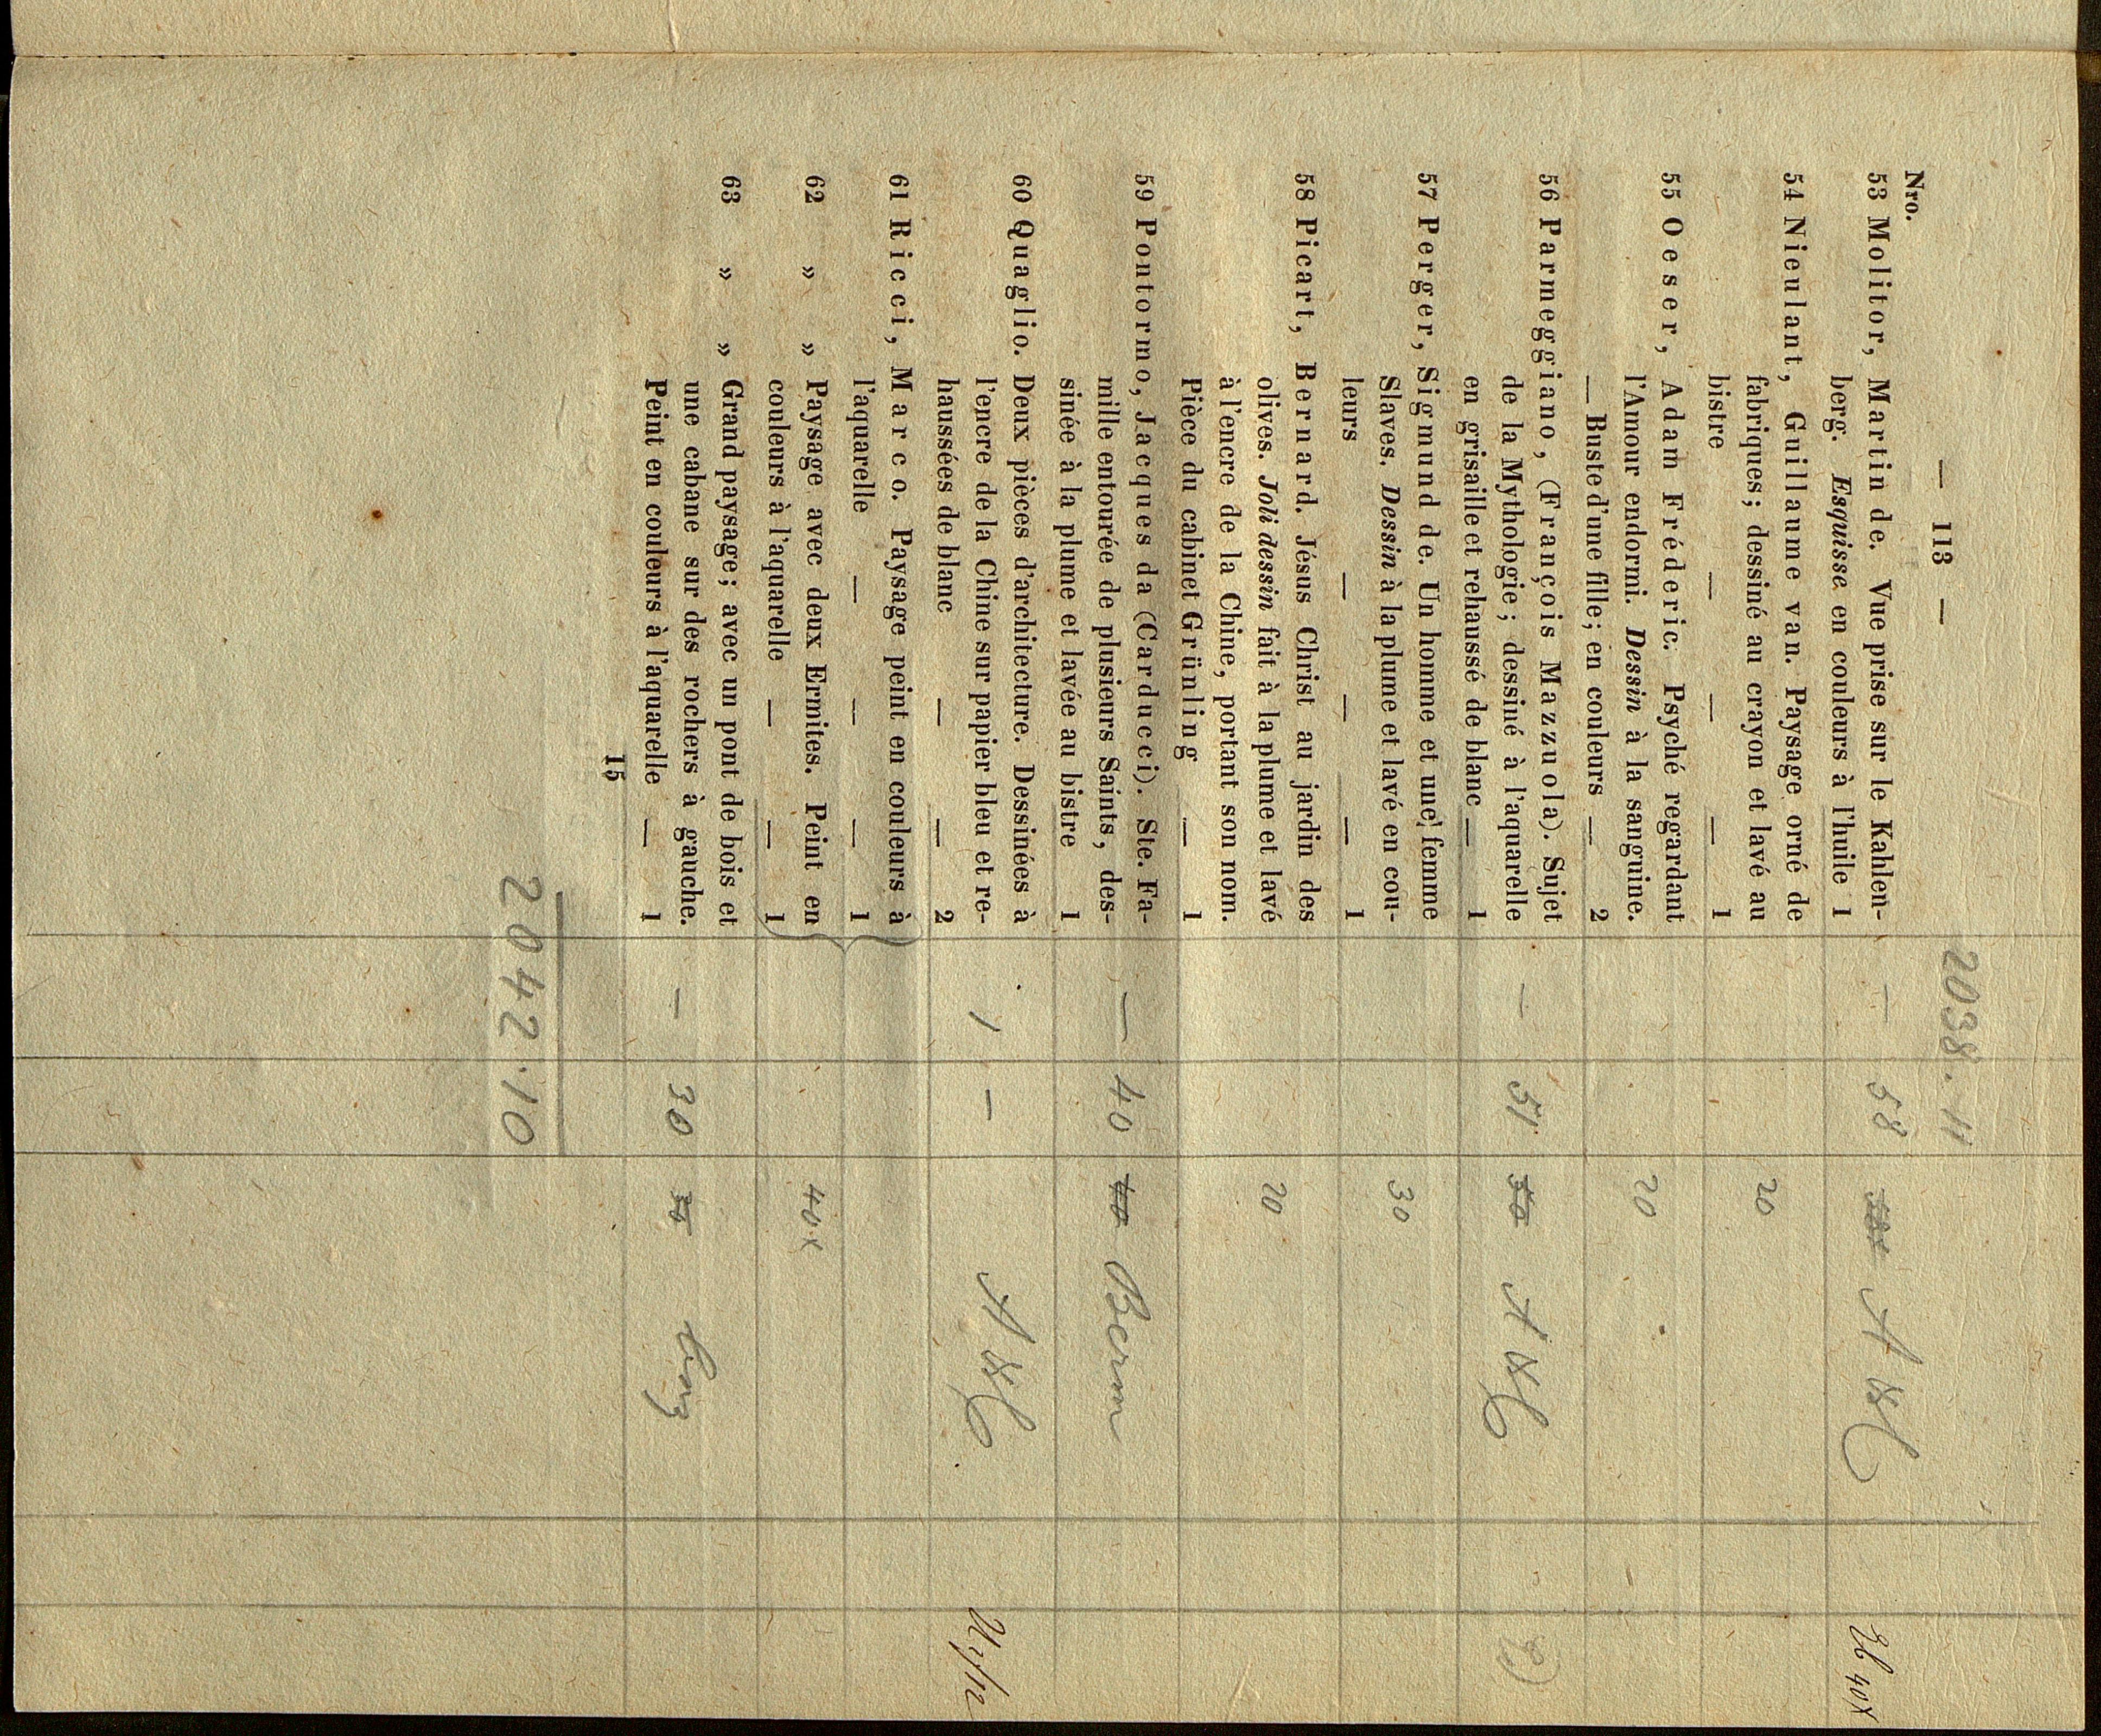 — 113 —
2038. 11
Nro.
53 Molitor, Martin de. Vue prise sur le Kahlen- — 58 A
berg. Esquisse en couleurs à l'huile 1
54 Nieulant, Guillaume van. Paysage orné de
fabriques; dessiné au crayon et lavé au 20
bistre — — — 1
55 Oeser, Adam Fréderic. Psyché regardant
l'Amour endormi. Dessin à la sanguine. 20
— Buste d'une fille; en couleurs — 2
56 Parmeggiano, (François Mazzuola). Sujet
de la Mythologie; dessiné à l'aquarelle — 51 50 A
en grisaille et rehaussé de blanc — 1
57 Perger, Sigmund de. Un homme et une femme
Slaves. Dessin à la plume et lavé en cou- 30
leurs — — — 1
58 Picart, Bernard. Jésus Christ au jardin des
olives. Joli dessin fait à la plume et lavé 20
à l'encre de la Chine, portant son nom.
Pièce du cabinet Grünling — 1
59 Pontormo, Jacques da (Carducci). Ste. Fa-
mille entourée de plusieurs Saints, des- — 40 40 Berm
sinée à la plume et lavée au bistre 1
60 Quaglio. Deux pièces d'architecture. Dessinées à
l'encre de la Chine sur papier bleu et re- 1 — A
haussées de blanc — — 2
61 Ricci, Marco. Paysage peint en couleurs à
l'aquarelle — — — 1
62 » » Paysage avec deux Ermites. Peint en 40x
couleurs à l'aquarelle — — 1
63 » » Grand paysage; avec un pont de bois et
une cabane sur des rochers à gauche. — 30 30
Peint en couleurs à l'aquarelle — 1
15
2042.10